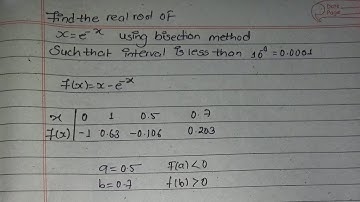 Find the real root of
x=e^-x using bisection method
Such that interval is less than 10^-4 = 0.0001
f(x)=x-e^-x
x | 0 1 0.5 0.7
f(x) | -1 0.63 -0.106 0.203
a=0.5 f(a)<0
b=0.7 f(b)>0